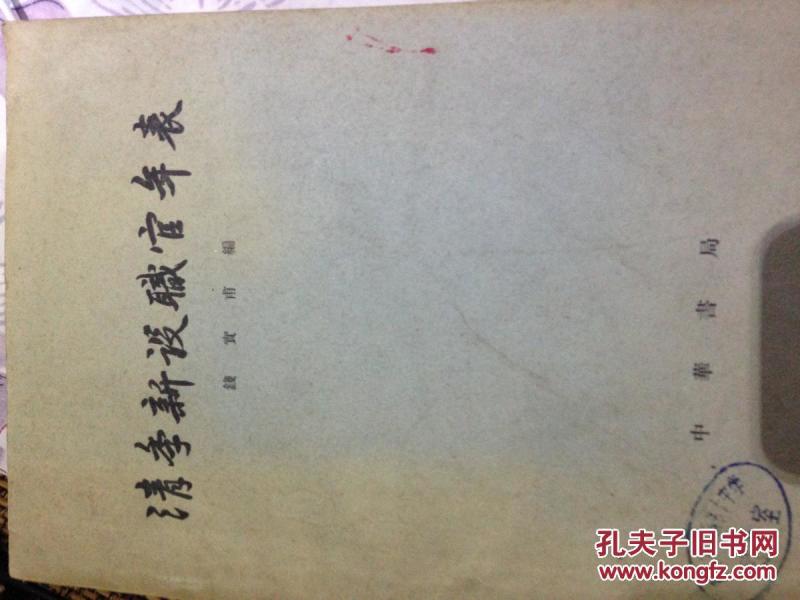 清季新設職官年表
錢實甫編
中華書局
室
孔夫子旧书网
www.kongfz.com